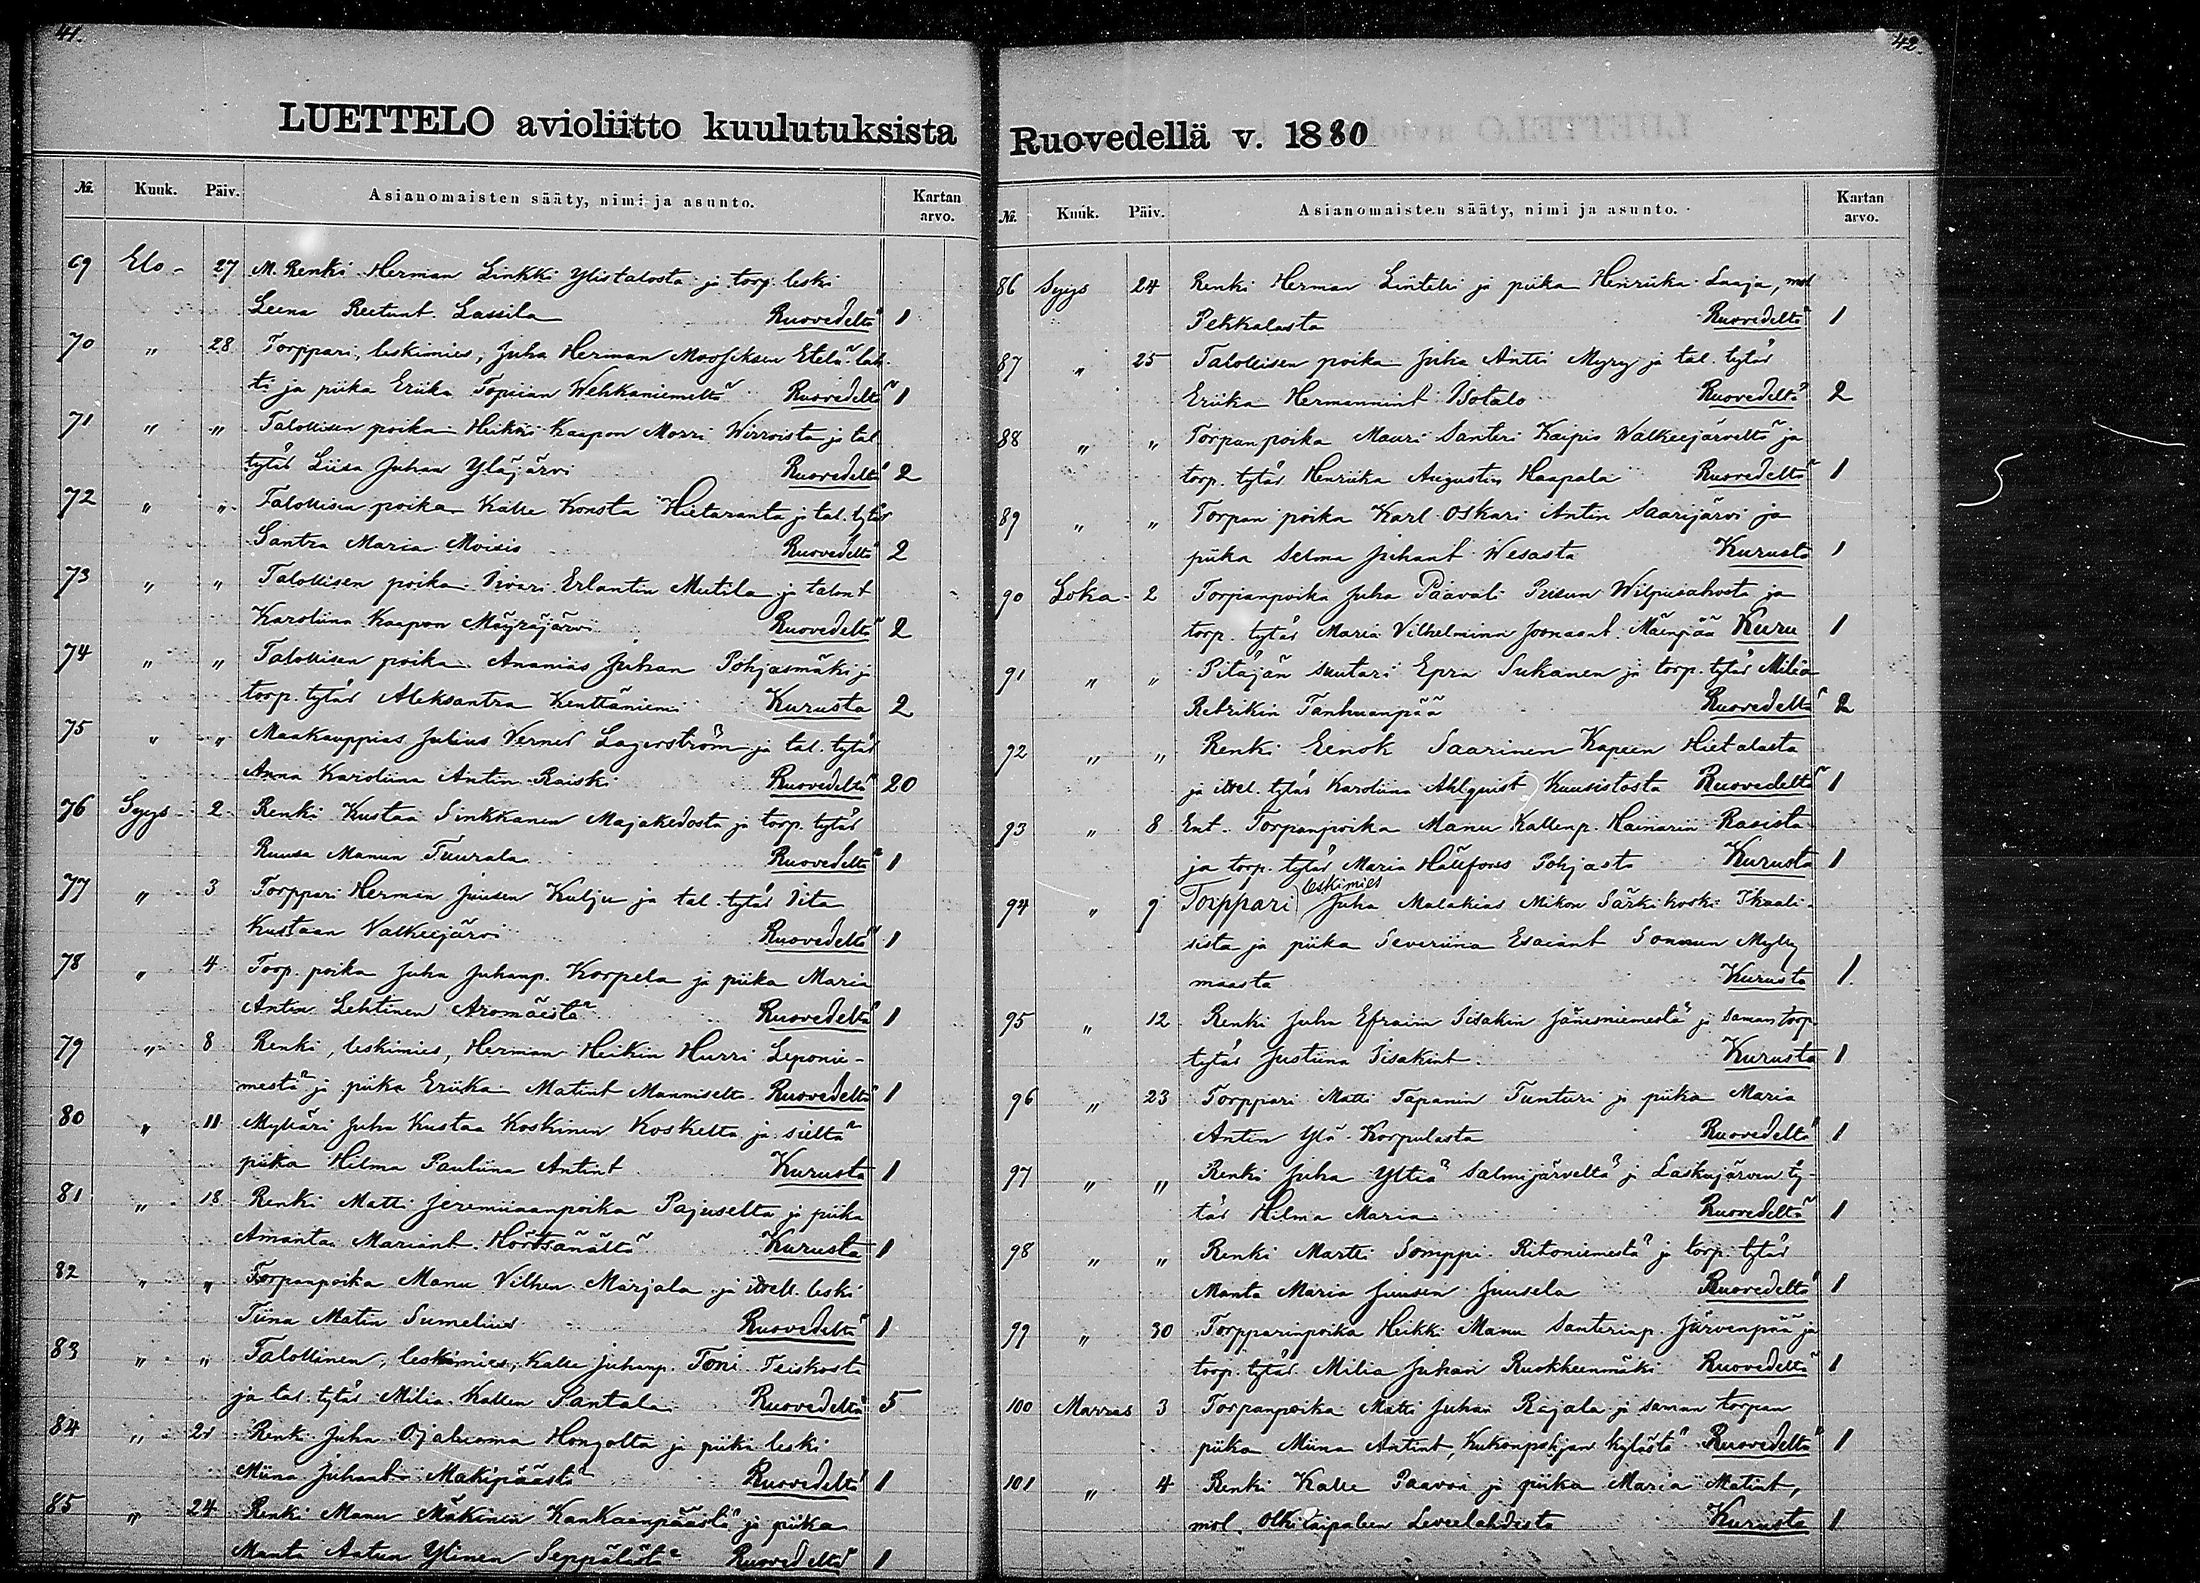 41.
LUETTELO avioliitto kuulutuksista
№. Kuuk. Päiv. Asianomaisten sääty, nimi ja asunto. Kartan arvo.
69 Elo- 27 M. Renki Herman Linkki Ylistalosta ja torp. leski
Leena Reetunt. Lassila Ruovedeltä 1
70 " 28 Torppari, leskimies, Juha Herman Mooseksen Etelä-lah-
ti ja piika Eriika Topiian Wehkaniemeltä Ruovedeltä 1
71 " " Talollisen poika Heikki Kaapon Morri Wirroista ja tal.
tytär Liisa Juhan Yläjärvi Ruovedeltä 2
72 " " Talollisen poika Kalle Konsta Hietaranta ja tal. tytär
Santra Maria Moisio Ruovedeltä 2
73 " " Talollisen poika Iivari Erlantin Mutila ja talont.
Karoliina Kaapon Mäyräjärvi Ruovedeltä 2
74 " " Talollisen poika Ananias Juhan Pohjasmäki ja
torp. tytär Aleksantra Kenttäniemi Kurusta 2
75 " " Maakauppias Julius Verner Lagerström ja tal. tytär
Anna Karoliina Antin Raiski Ruovedeltä 20
76 Syys- 2 Renki Kustaa Sinkkanen Majakedosta ja torp. tytär
Ruusa Manun Tuurala Ruovedeltä 1
77 " 3 Torppari Herman Juusen Kulju ja tal. tytär Iita
Kustaan Valkeejärvi Ruovedeltä 1
78 " 4 Torp. poika Juha Juhanp. Korpela ja piika Maria
Antin Lehtinen Aromäestä Ruovedeltä 1
79 " 8 Renki, leskimies, Herman Heikin Hurri Leponie-
mestä ja piika Eriika Matint Manniselta Ruovedeltä 1
80 " 11 Mylläri Juha Kustaa Koskinen Koskelta ja sieltä
piika Hilma Pauliina Antint Kurusta 1
81 " 18 Renki Matti Jeremiaanpoika Pajuselta ja piika
Amanta Mariant. Hörtsänältä Kurusta 1
82 " " Torpanpoika Manu Vilhen Marjala ja itsell. leski
Tiina Matin Sumelius Ruovedeltä 1
83 " " Talollinen, leskimies, Kalle Juhanp. Toni Teiskosta
ja tal. tytär Milia Kallen Santala Ruovedeltä 5
84 " 21 Renki Juha Ojaluoma Hongolta ja piika leski
Miina Juhant Mäkipäästä Ruovedeltä 1
85 " 24 Renki Manu Mäkinen Kankaanpäästä ja piika
Manta Antun Ylinen Seppälästä Ruovedeltä 1
42.
Ruovedellä v. 1880
№. Kuuk. Päiv. Asianomaisten sääty, nimi ja asunto. Kartan arvo.
86 Syys 24 Renki Herman Lintelli ja piika Henriika Laaja, mol.
Pekkalasta Ruovedeltä 1
87 " 25 Talollisen poika Juha Antti Myry ja tal. tytär
Eriika Hermannint Isotalo Ruovedeltä 2
88 " " Torpanpoika Mauri Santeri Kaipio Walkeejärveltä ja
torp. tytär Henriika Augustin Haapala Ruovedeltä 1
89 " " Torpan poika Karl Oskari Antin Saarijärvi ja
piika Selma Juhant Wesasta Kurusta 1
90 Loka- 2 Torpanpoika Juha Paavali Wilpusahosta ja
torp. tytär Maria Vilhelmina Joonaant. Mäenpää Kuru 1
91 " " Pitäjän suutari Epra Sukanen ja torp. tytär Milia
Retrikin Tanhuanpää Ruovedeltä 2
92 " " Renki Eenok Saarinen Kapeen Hietalasta
ja itsel. tytär Karoliina Ahlqvist Kuusistosta Ruovedeltä 1
93 " 8 Ent. Torpanpoika Manu Kallenp. Hainarin Rasista
ja torp. tytär Maria Hällfors Pohjasta Kurusta 1
94 " 9 Torppari leskimies Juha Malakias Mikon Särkikoski Ikaali-
sista ja piika Severiina Esaiant Sonnun Mylly
maasta Kurusta 1.
95 " 12 Renki Juha Efraim Iisakin Jänisniemestä ja saman torp.
tytär Justiina Iisakint Kurusta 1
96 " 23 Torppari Matti Tapanin Tunturi ja piika Maria
Antin Ylä-Korpulasta Ruovedeltä 1
97 " " Renki Juha Yltiä Salmijärveltä ja Laskujärven ty-
tär Hilma Maria Ruovedeltä 1
98 " " Renki Martti Somppi Ritoniemestä ja torp. tytär
Manta Maria Juusen Juusela Ruovedeltä 1
99 " 30 Torpparinpoika Heikki Manu Santerinp. Järvenpää ja
torp. tytär Milia Juhan Ruokkeenmäki Ruovedeltä 1
100 Marras 3 Torpanpoika Matti Juhan Rajala ja saman torpan
piika Miina Antint, Kukonpohjan kylästä Ruovedeltä 1
101 " 4 Renki Kalle Paavon ja piika Maria Matint,
mol. Olkitaipaleen Leveelahdesta Kurusta 1